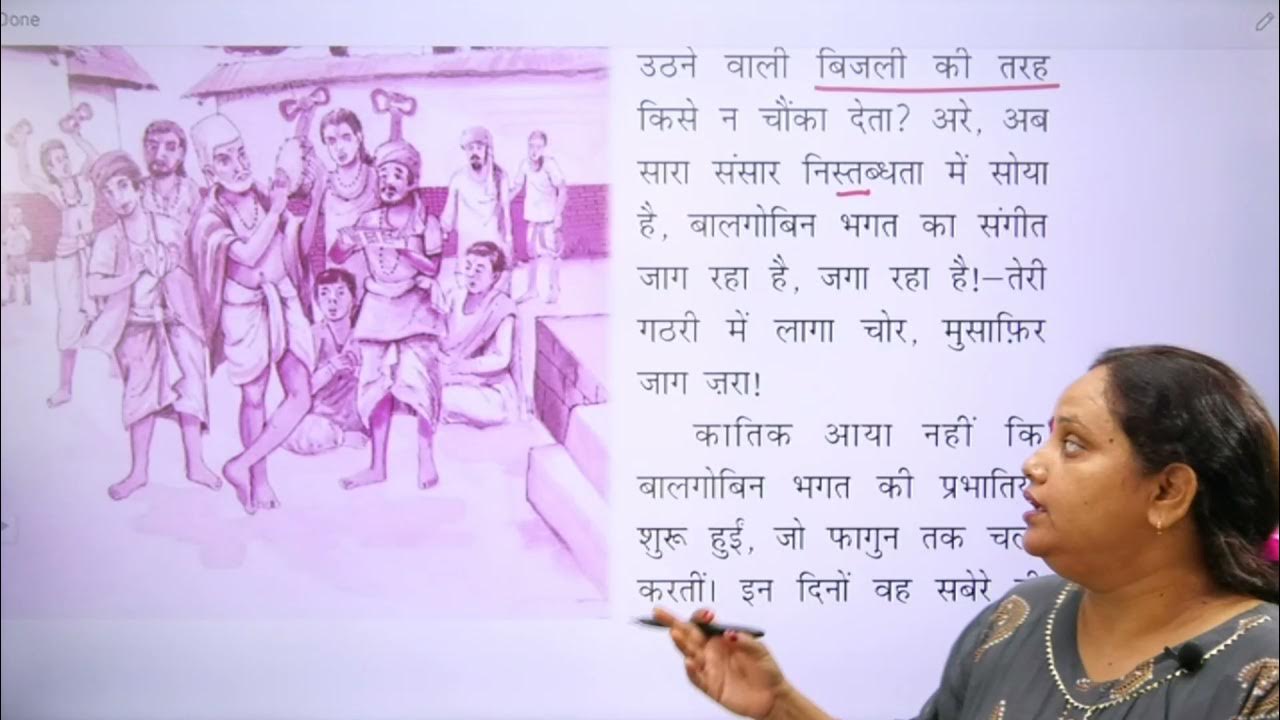 Done
उठने वाली बिजली की तरह
किसे न चौंका देता? अरे, अब
सारा संसार निस्तब्धता में सोया
है, बालगोबिन भगत का संगीत
जाग रहा है, जगा रहा है!—तेरी
गठरी में लागा चोर, मुसाफ़िर
जाग ज़रा!
कातिक आया नहीं कि
बालगोबिन भगत की
शुरू हुईं, जो फागुन तक
करतीं। इन दिनों वह सबेरे